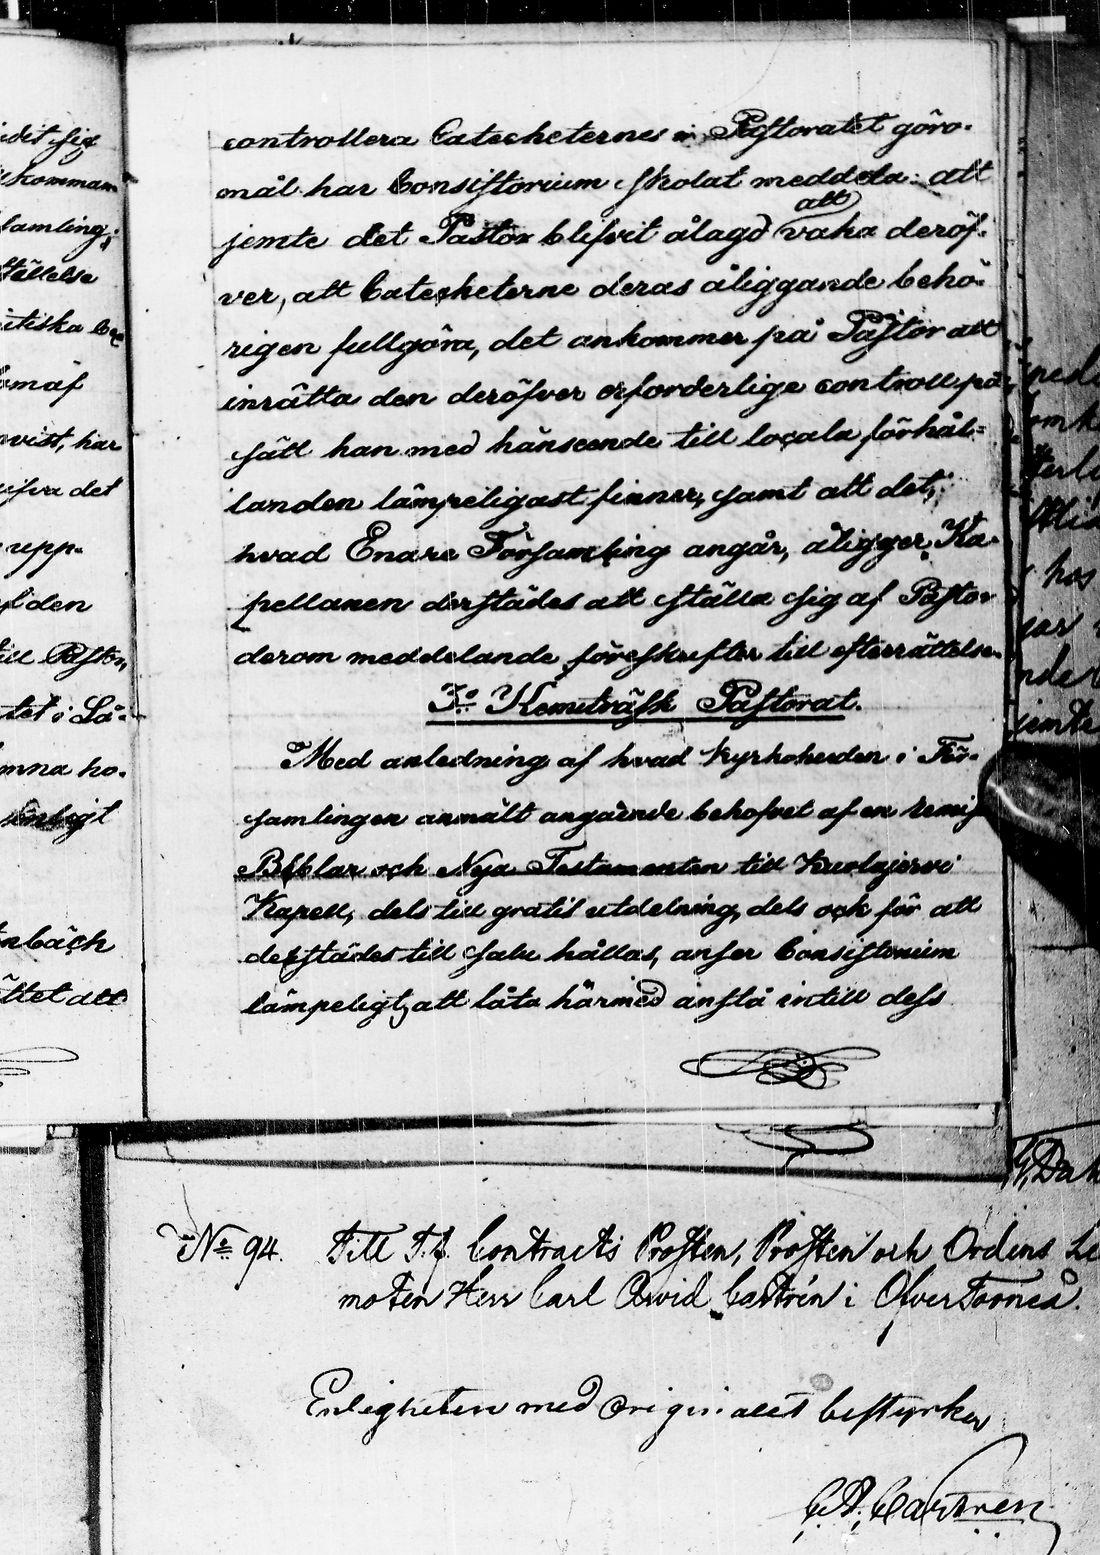 controllera Catecheternes i Pastoratet göro-
mål har Consistorium skolat meddela: att
jemte det Pastor blifvit ålagd att vaka deröf-
ver, att Catecheterne deras åliggande behö-
rigen fullgöra, det ankommer på Pastor att
inrätta den deröfver erforderlige controll på
sätt han med hänseende till locala förhål-
landen lämpeligast finner, samt att det,
hvad Enare Församling angår, åligger Ka-
pellanen derstädes att ställa sig af Pastor
derom meddelande föreskrifter till efterrättelse.
3o Kemiträsk Pastorat.
Med anledning af hvad Kyrkoherden i För-
samlingen anmält angående behofvet af en remiss
Biblar och Nya Testamenten till Kuolajervi
Kapell, dels till gratis utdelning, dels ock för att
derstädes till salu hållas, anser Consistorium
lämpeligt, att låta härmed anstå intill dess
No 94. Till T.f. Contracts Prosten, Prosten och Ordens Le
moten Herr Carl Arvid Castrén i OfverTorneå.
Enligheten med originalet bestyrker
C. A. Castrén
edit sig
komman
samling;
ställelse
omäf
vist, har
det
upp-
den
till Pastor,
tet i La-
mna ho-
enligt
nbäck
ättet att
hos
jemte